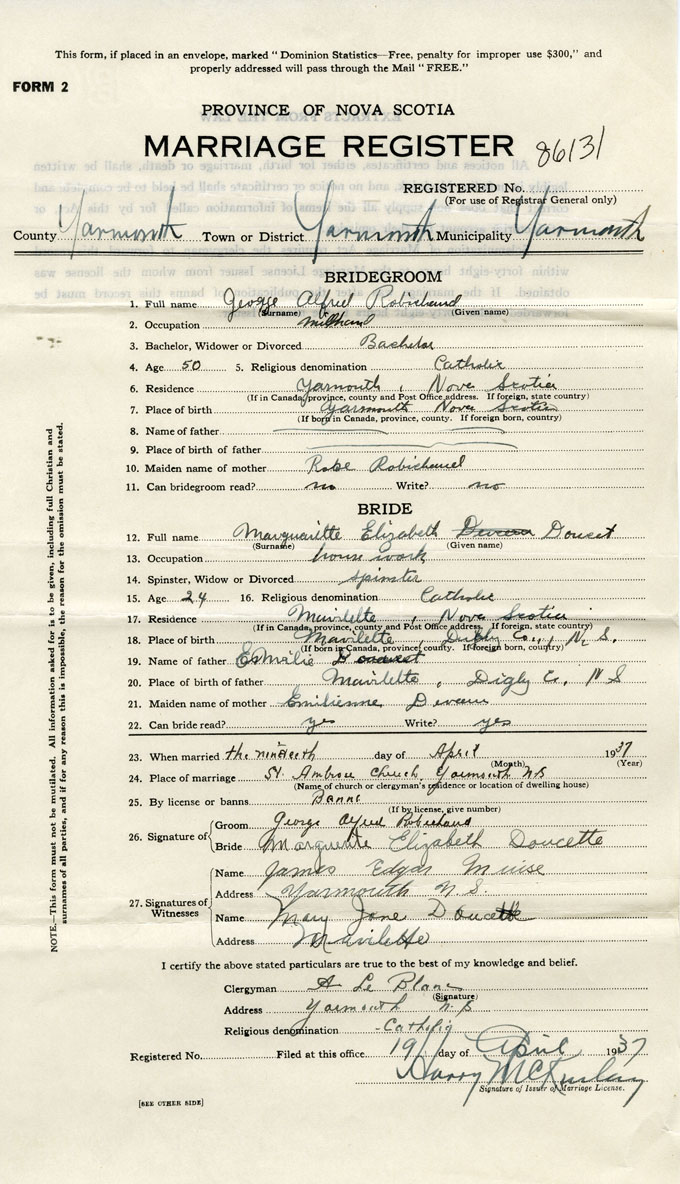 This form, if placed in an envelope, marked "Dominion Statistics—Free, penalty for improper use $300," and
properly addressed will pass through the Mail "FREE."
FORM 2
PROVINCE OF NOVA SCOTIA
MARRIAGE REGISTER 86131
REGISTERED No.
(For use of Registrar General only)
County Yarmouth Town or District Yarmouth Municipality Yarmouth
BRIDEGROOM
1. Full name George Alfred Robichaud
(Surname) (Given name)
2. Occupation millhand
3. Bachelor, Widower or Divorced Bachelor
4. Age 50 5. Religious denomination Catholic
6. Residence Yarmouth, Nova Scotia
(If in Canada, province, county and Post Office address. If foreign, state country)
7. Place of birth Yarmouth Nova Scotia
(If born in Canada, province, county. If foreign born, country)
8. Name of father
9. Place of birth of father
10. Maiden name of mother Rose Robichaud
11. Can bridegroom read? no Write? no
BRIDE
12. Full name Marguaritte Elizabeth Doucet
(Surname) (Given name)
13. Occupation house work
14. Spinster, Widow or Divorced spinster
15. Age 24 16. Religious denomination Catholic
17. Residence Mavilette, Nova Scotia
(If in Canada, province, county and Post Office address. If foreign, state country)
18. Place of birth Mavilette, Digby Co., N. S.
(If born in Canada, province, county. If foreign born, country)
19. Name of father Doucet
20. Place of birth of father Mavilette, Digby Co, N S
21. Maiden name of mother Emilienne Deveau
22. Can bride read? yes Write? yes
23. When married the ninteeth day of April 1937
(Month) (Year)
24. Place of marriage St. Ambrose Church, Yarmouth N S
(Name of church or clergyman's residence or location of dwelling house)
25. By license or banns Banns
(If by license, give number)
26. Signature of Groom George Alfred Robichaud
Bride Marguerite Elizabeth Doucette
27. Signatures of Witnesses Name James Edgar Muise
Address Yarmouth N. S.
Name Mary Jane Doucette
Address Mavilette
I certify the above stated particulars are true to the best of my knowledge and belief.
Clergyman A Le Blanc
(Signature)
Address Yarmouth N. S
Religious denomination Catholic
Registered No. Filed at this office 19 day of April 1937
Harry McKinlay
Signature of Issuer of Marriage License.
[SEE OTHER SIDE]
NOTE.—This form must not be mutilated. All information asked for is to be given, including full Christian and
surnames of all parties, and if for any reason this is impossible, the reason for the omission must be stated.